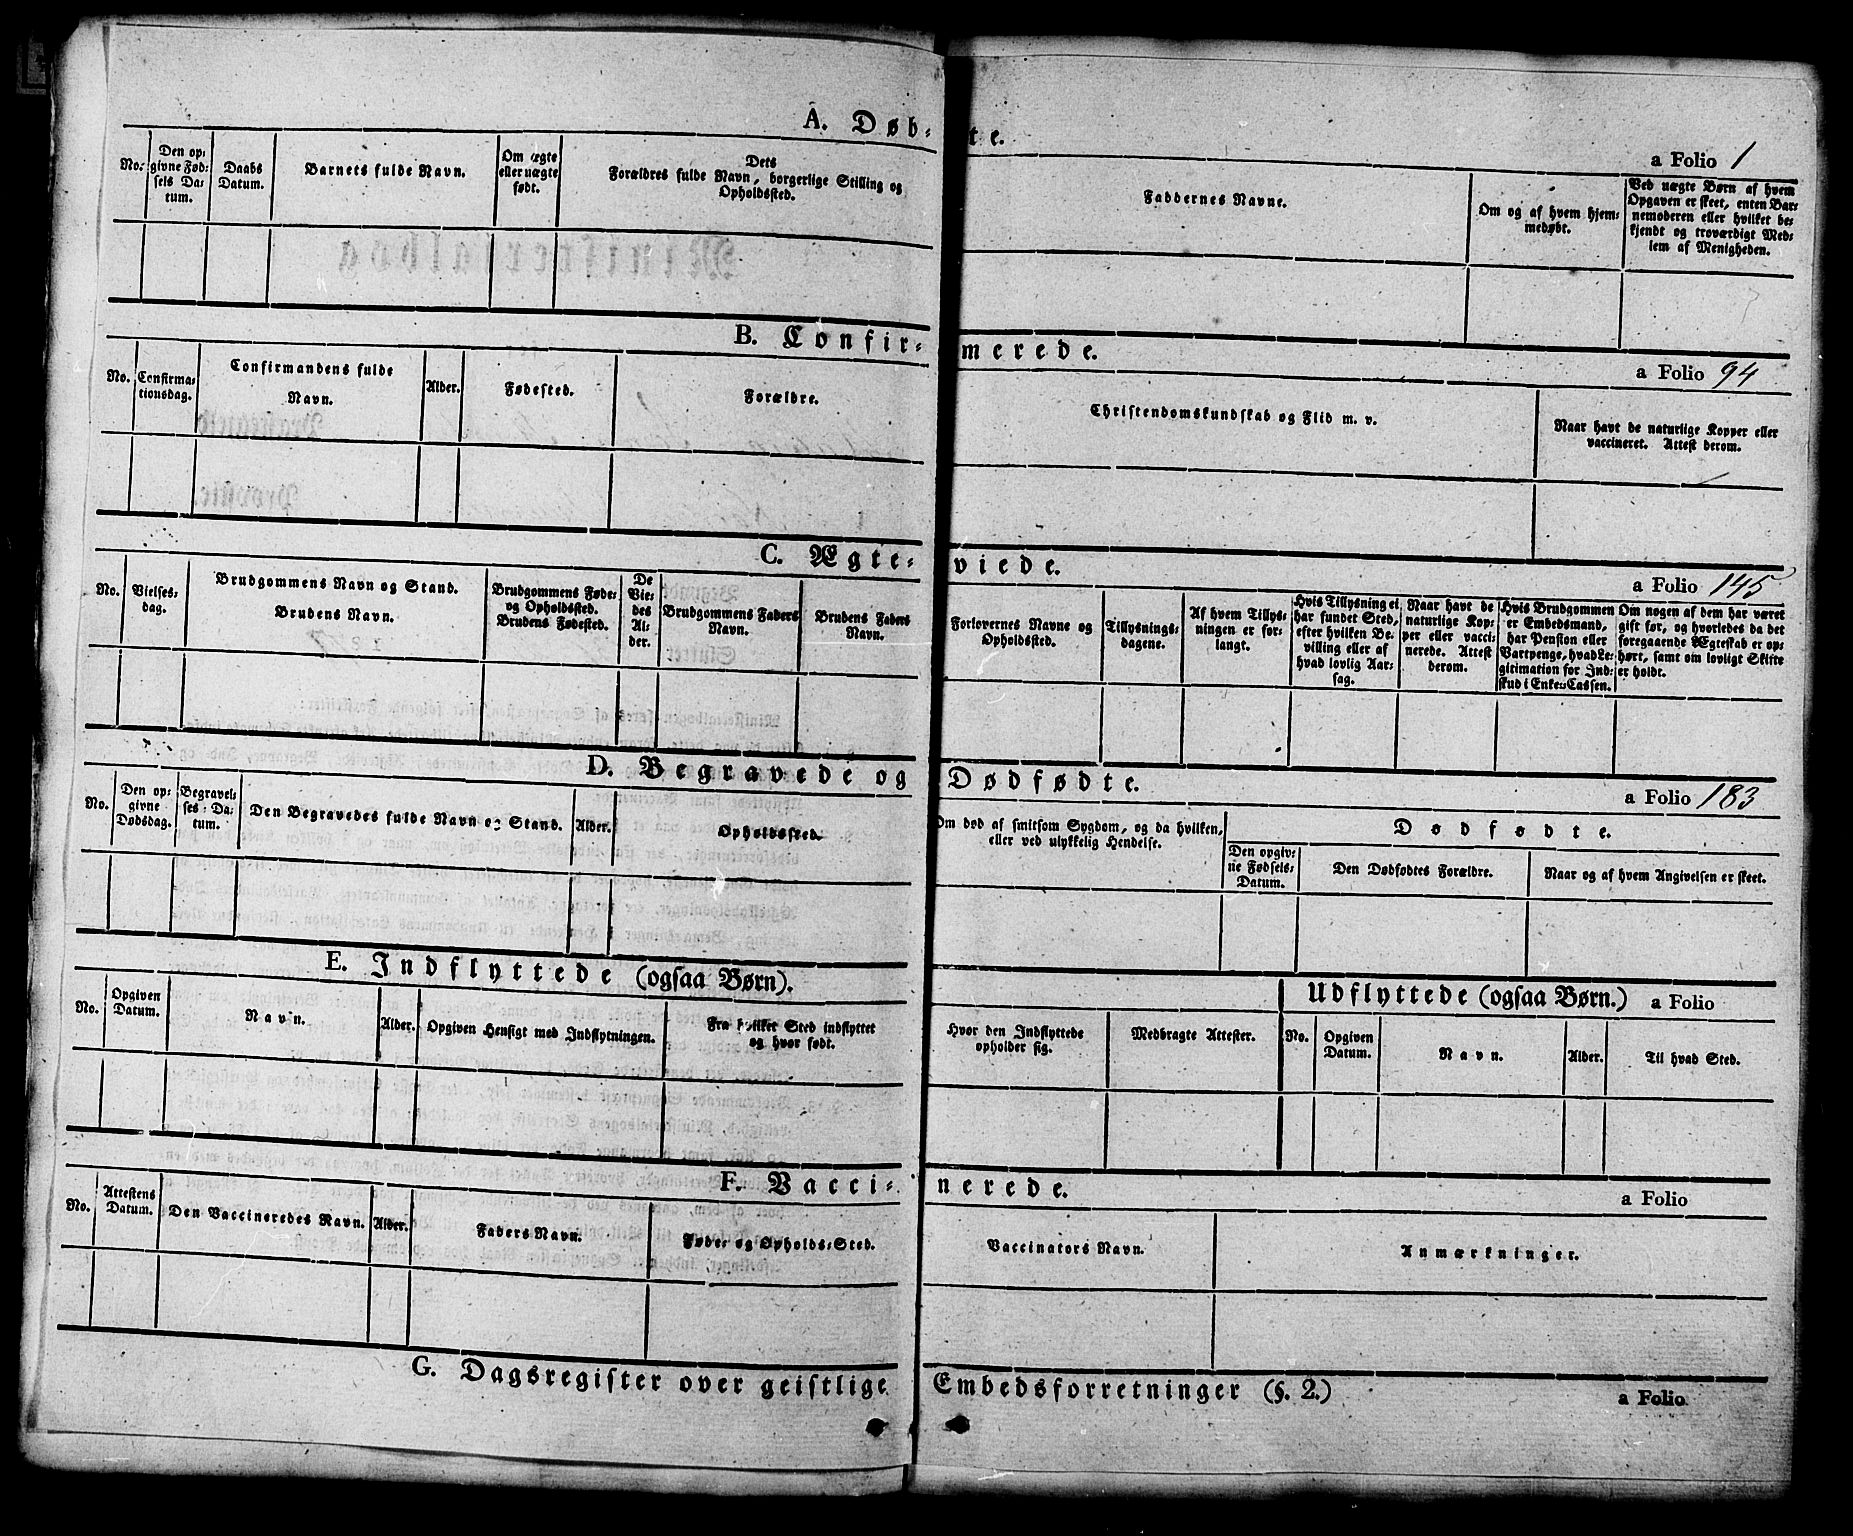 A. Døbte.
a Folio 1
No.
Den op=
givne Fød=
sels Da=
tum.
Daabs
Datum.
Barnets fulde Navn.
Om ægte
eller uægte
født.
Dets
Forældres fulde Navn, borgerlige Stilling og
Opholdssted.
Faddernes Navne.
Om og af hvem hjem=
medøbt.
Ved uægte Børn af hvem
Opgaven er skeet, enten Bar=
nemoderen eller hvilket be=
kjendt og troværdigt Med=
lem af Menigheden.
B. Confirmerede.
a Folio 94
No.
Confirma=
tionsdag.
Confirmandens fulde
Navn.
Alder.
Fødested.
Forældre.
Christendomskundskab og Flid m. v.
Naar havt de naturlige Kopper eller
vaccineret. Attest derom.
C. Ægteviede.
a Folio 145
No.
Vielses=
dag.
Brudgommens Navn og Stand.
Brudens Navn.
Brudgommens Føde=
og Opholdssted.
Brudens Fødested.
De
Vie=
des
Al=
der.
Brudgommens Faders
Navn.
Brudens Faders
Navn.
Forlovernes Navne og
Opholdssted.
Tillysnings=
dagene.
Af hvem Tillys=
ningen er for=
langt.
Hvis Tillysning ei
har fundet Sted,
efter hvilken Be=
villing eller af
hvad lovlig Aar=
sag.
Naar havt de
naturlige Kop=
per eller vacci=
nerede. Attest
derom.
Hvis Brudgommen
er Embedsmand,
har Pension eller
Vartpenge, hvad Le=
gitimation for Ind=
skud i Enke=Cassen.
Om nogen af dem har været
gift før, og hvorledes da det
foregaaende Ægteskab er op=
hørt, samt om lovligt Skifte
er holdt.
D. Begravede og Dødfødte.
a Folio 183
No.
Den op=
givne
Dødsdag.
Begravel=
ses=Da=
tum.
Den Begravedes fulde Navn og Stand.
Alder.
Opholdssted.
Om død af smitsom Sygdom, og da hvilken,
eller ved ulykkelig Hendelse.
Dødfødte.
Den opgiv=
ne Fødsels=
Datum.
Den Dødfødtes Forældre.
Naar og af hvem Angivelsen er skeet.
E. Indflyttede (ogsaa Børn).
Udflyttede (ogsaa Børn.)
a Folio
No.
Opgiven
Datum.
Navn.
Alder.
Opgiven Hensigt med Indflytningen.
Fra hvilket Sted indflyttet
og hvor født.
Hvor den Indflyttede
opholder sig.
Medbragte Attester.
No.
Opgiven
Datum.
Navn.
Alder.
Til hvad Sted.
F. Vaccinerede.
a Folio
No.
Attestens
Datum.
Den Vaccineredes Navn.
Alder.
Faders Navn.
Føde= og Opholds=Sted.
Vaccinators Navn.
Anmærkninger.
G. Dagsregister over geistlige Embedsforretninger (§. 2.)
a Folio